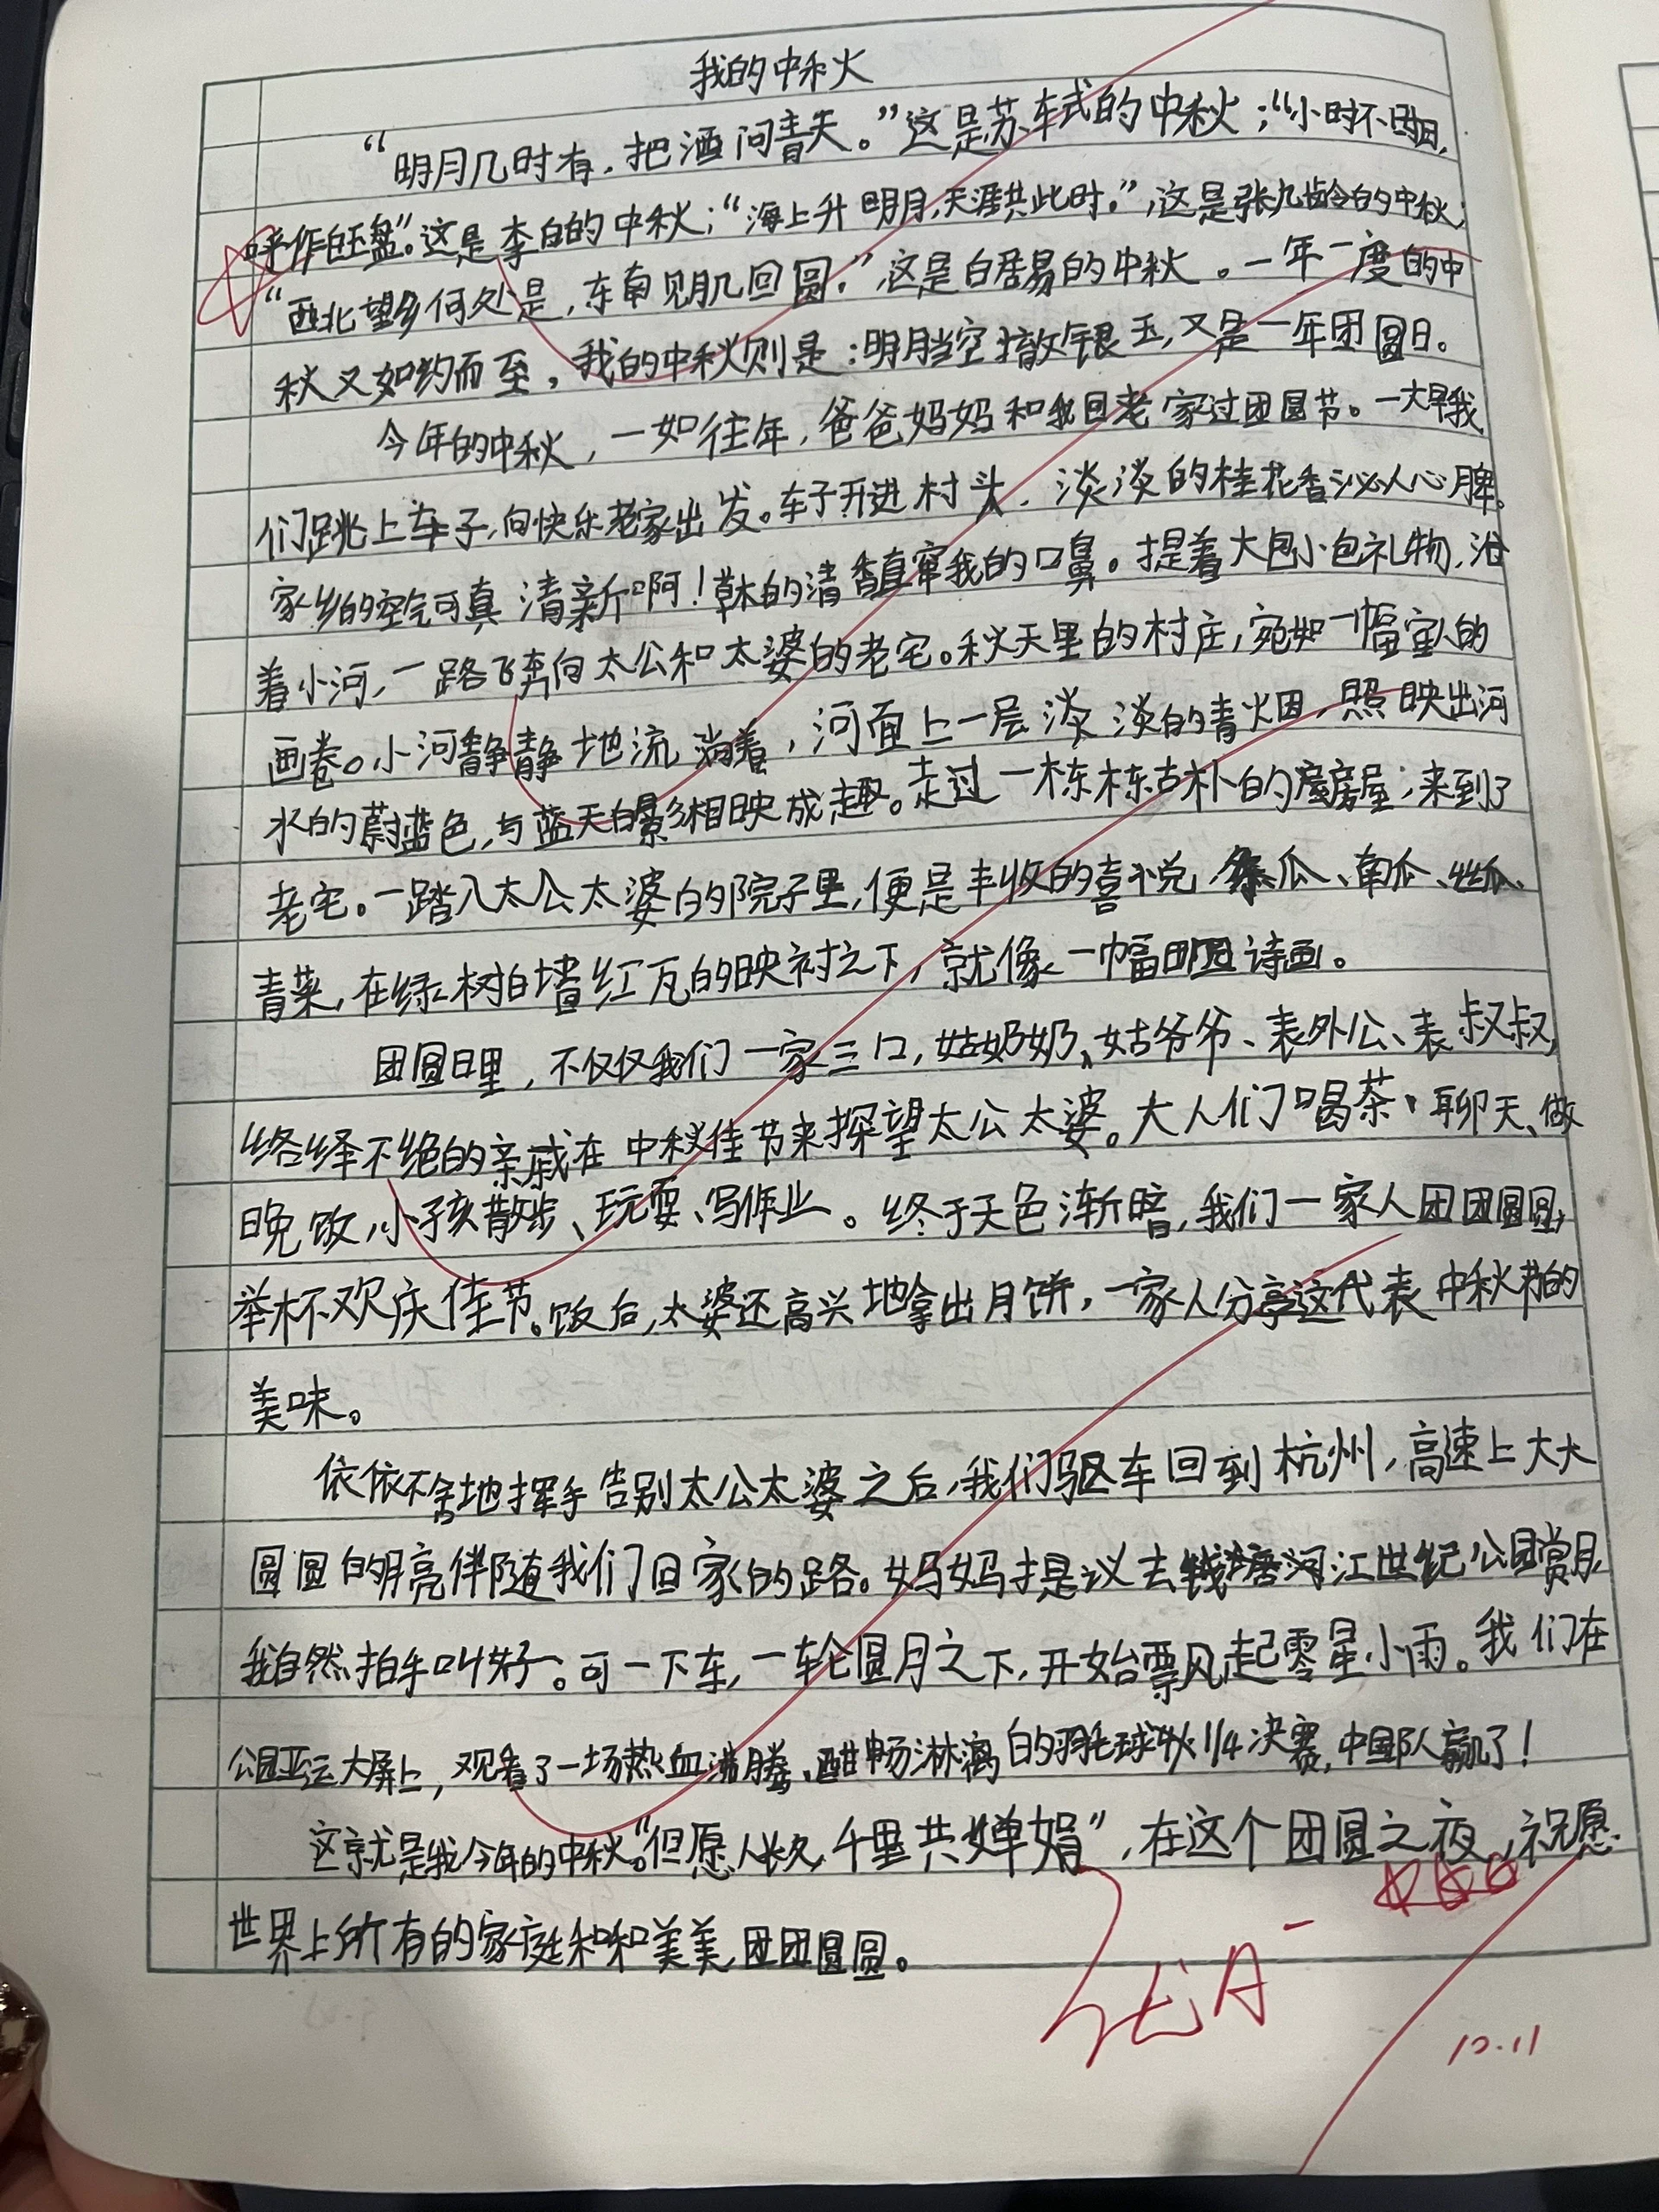 我的中秋
“明月几时有，把酒问青天。”这是苏轼的中秋；“小时不识月，
呼作白玉盘”。这是李白的中秋；“海上升明月，天涯共此时。”，这是张九龄的中秋；
“西北望乡何处是，东南见月几回圆。”，这是白居易的中秋。一年一度的中
秋又如约而至，我的中秋则是：明月当空撒银玉，又是一年团圆日。
今年的中秋，一如往年，爸爸妈妈和我回老家过团圆节。一大早我
们跳上车子，向快乐老家出发。车子开进村头，淡淡的桂花香沁人心脾。
家乡的空气可真清新啊！草木的清香直窜我的口鼻。提着大包小包礼物，沿
着小河，一路飞奔向太公和太婆的老宅。秋天里的村庄，宛如一幅宜人的
画卷。小河静静地流淌着，河面上一层淡淡的青烟，照映出河
水的蔚蓝色，与蓝天白影相映成趣。走过一栋栋古朴的房屋；来到了
老宅。一踏入太公太婆的院子里，便是丰收的喜悦 冬瓜、南瓜、丝瓜、
青菜，在绿树白墙红瓦的映衬之下，就像一幅田园诗画。
团圆日里，不仅仅我们一家三口，姑奶奶、姑爷爷、表外公、表叔叔，
络绎不绝的亲戚在中秋佳节来探望太公太婆。大人们喝茶、聊天、做
晚饭，小孩散步、玩耍、写作业。终于天色渐暗，我们一家人团团圆圆，
举杯欢庆佳节。饭后，太婆还高兴地拿出月饼，一家人分享这代表中秋节的
美味。
依依不舍地挥手告别太公太婆之后，我们驱车回到杭州，高速上大大
圆圆的月亮伴随我们回家的路。妈妈提议去钱塘江世纪公园赏月，
我自然拍手叫好。可一下车，一轮圆月之下，开始飘起零星小雨。我们在
公园亚运大屏上，观看了一场热血沸腾、酣畅淋漓的羽毛球1/4决赛，中国队赢了！
这就是我今年的中秋。“但愿人长久，千里共婵娟”，在这个团圆之夜，祝愿
世界上所有的家庭和和美美，团团圆圆。
优A-
10.11